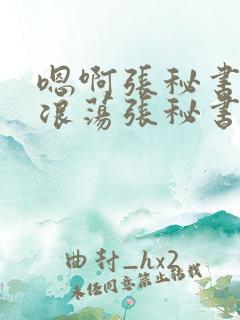 嗯啊張秘書
浪蕩張秘書
曲封_hx2
未经同意禁止转载